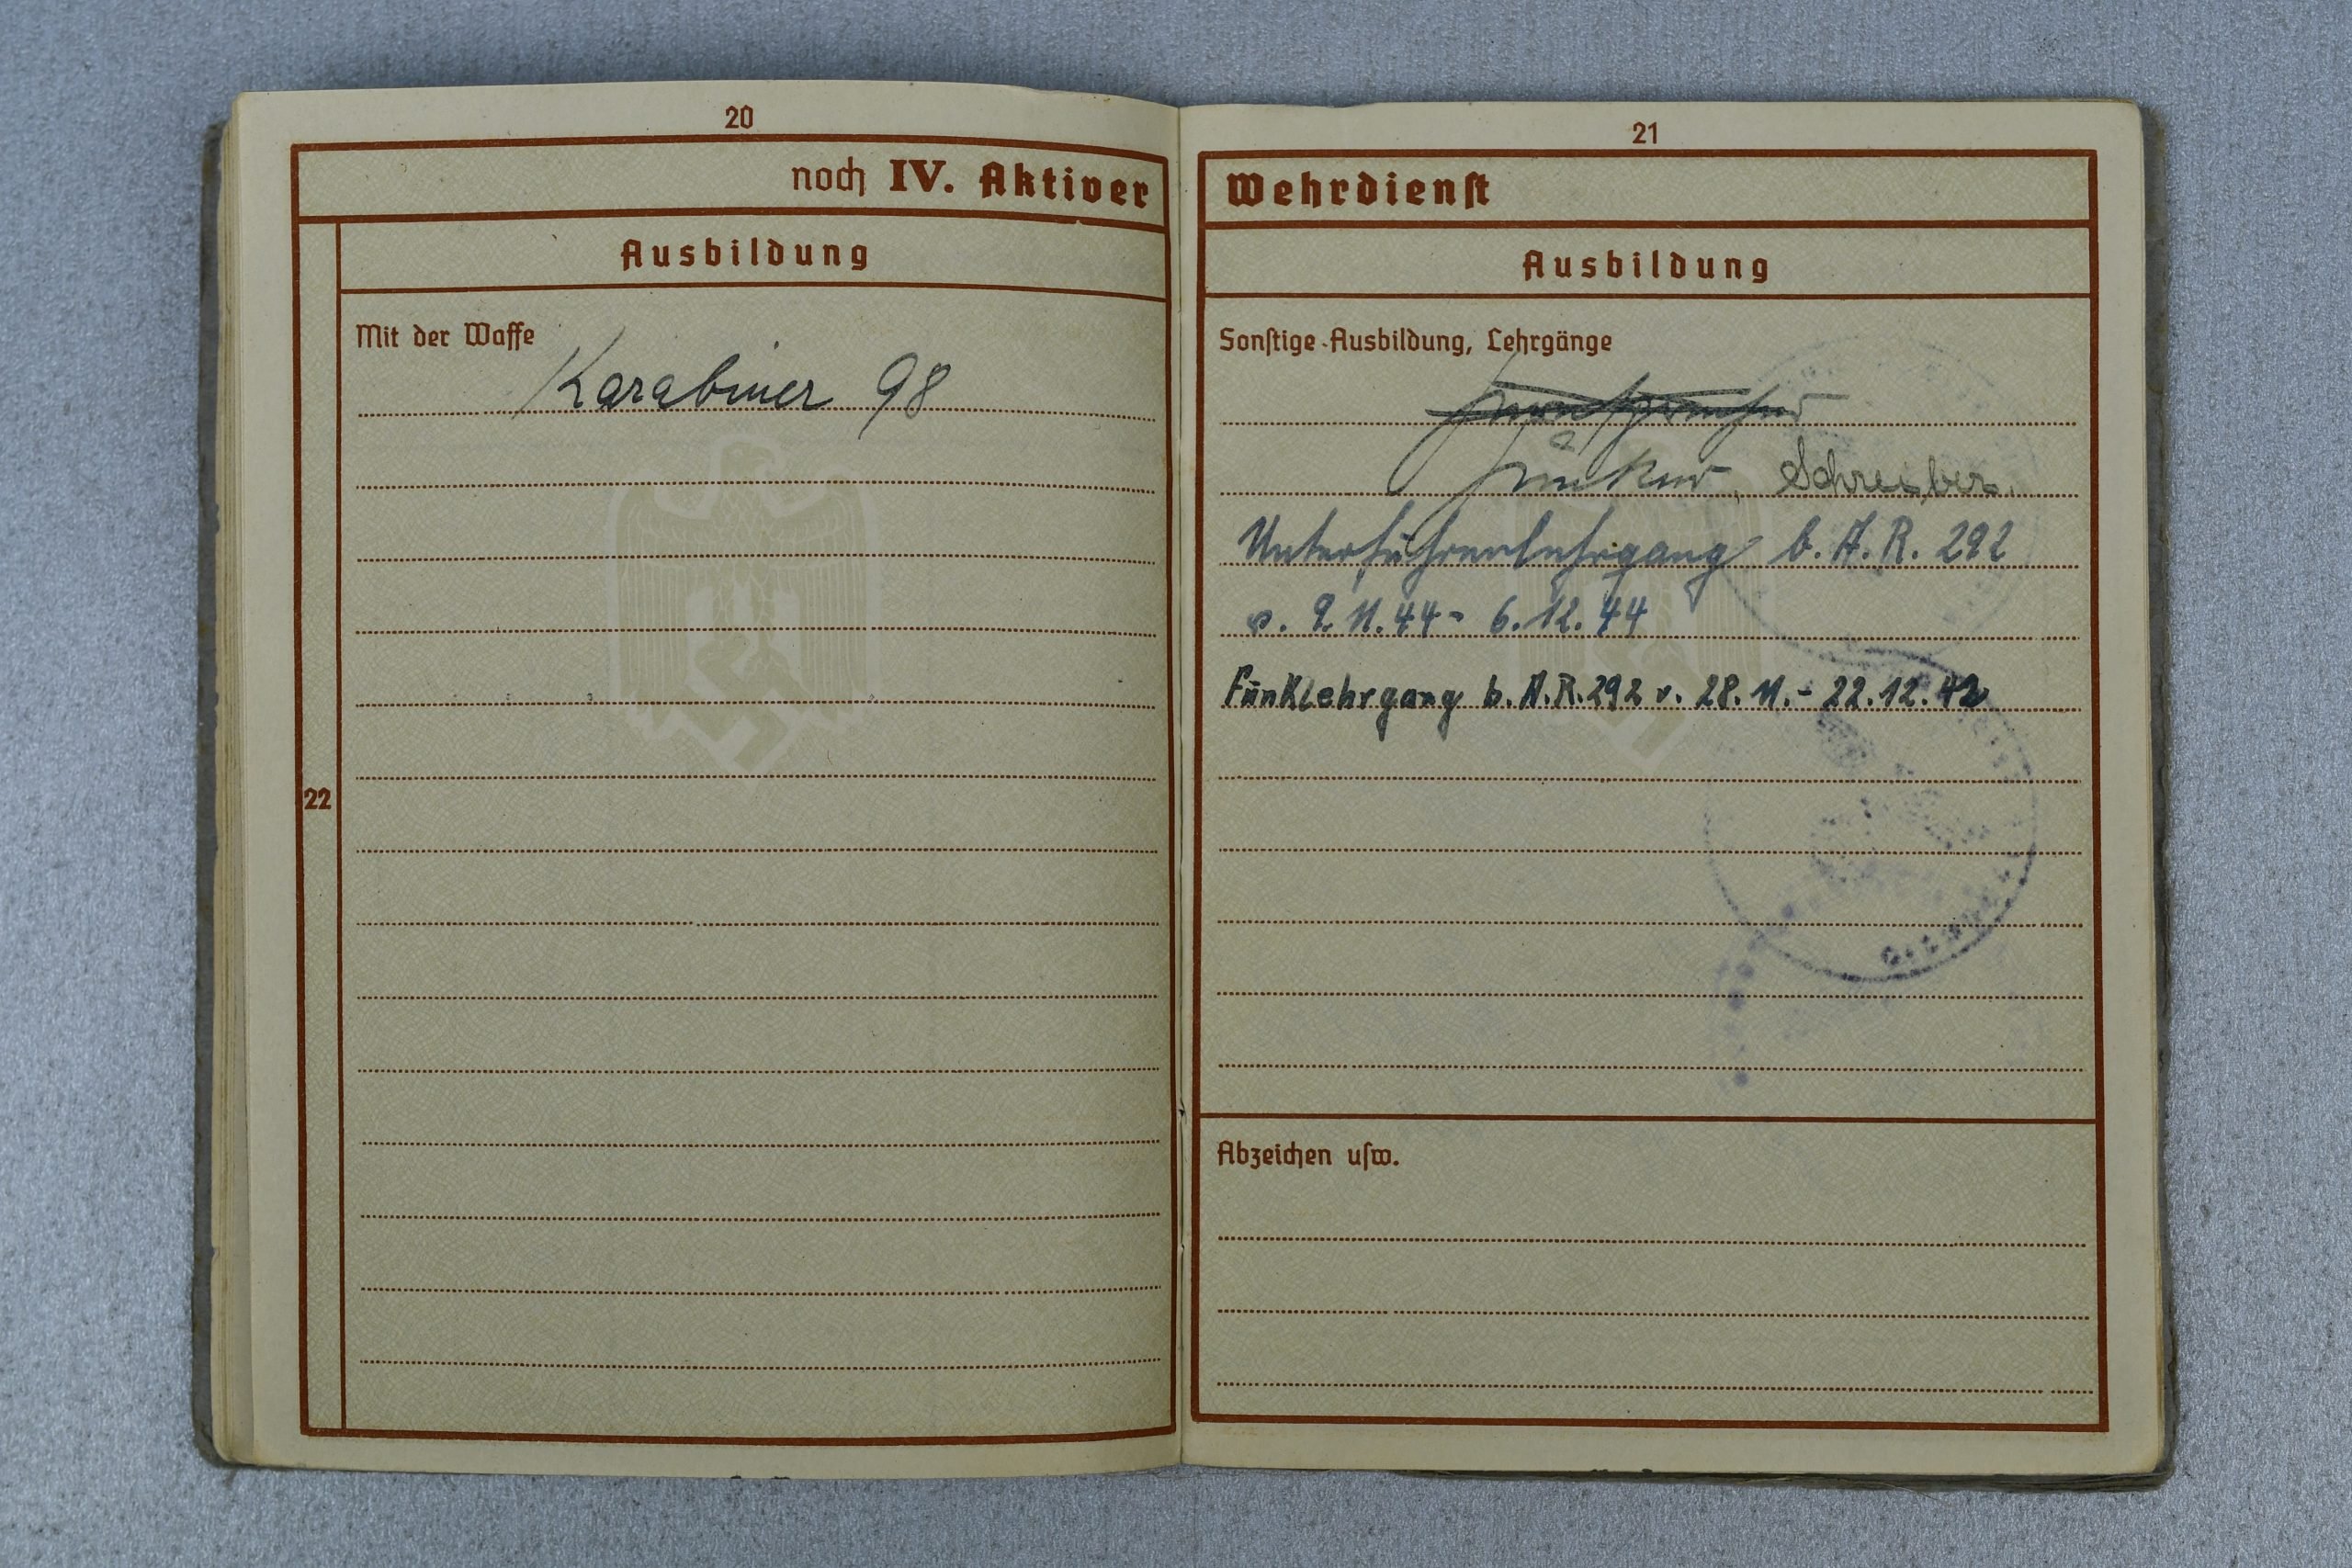 20
noch IV. Aktiver
Ausbildung
Mit der Waffe
Karabiner 98
22
21
Wehrdienst
Ausbildung
Sonstige Ausbildung, Lehrgänge
Fernsprecher
Funker, Schreiber.
Unterführerlehrgang b. A. R. 292
v. 9. 11. 44 - 6. 12. 44
Funklehrgang b. A. R. 292 v. 28. 11. - 22. 12. 42
Abzeichen usw.